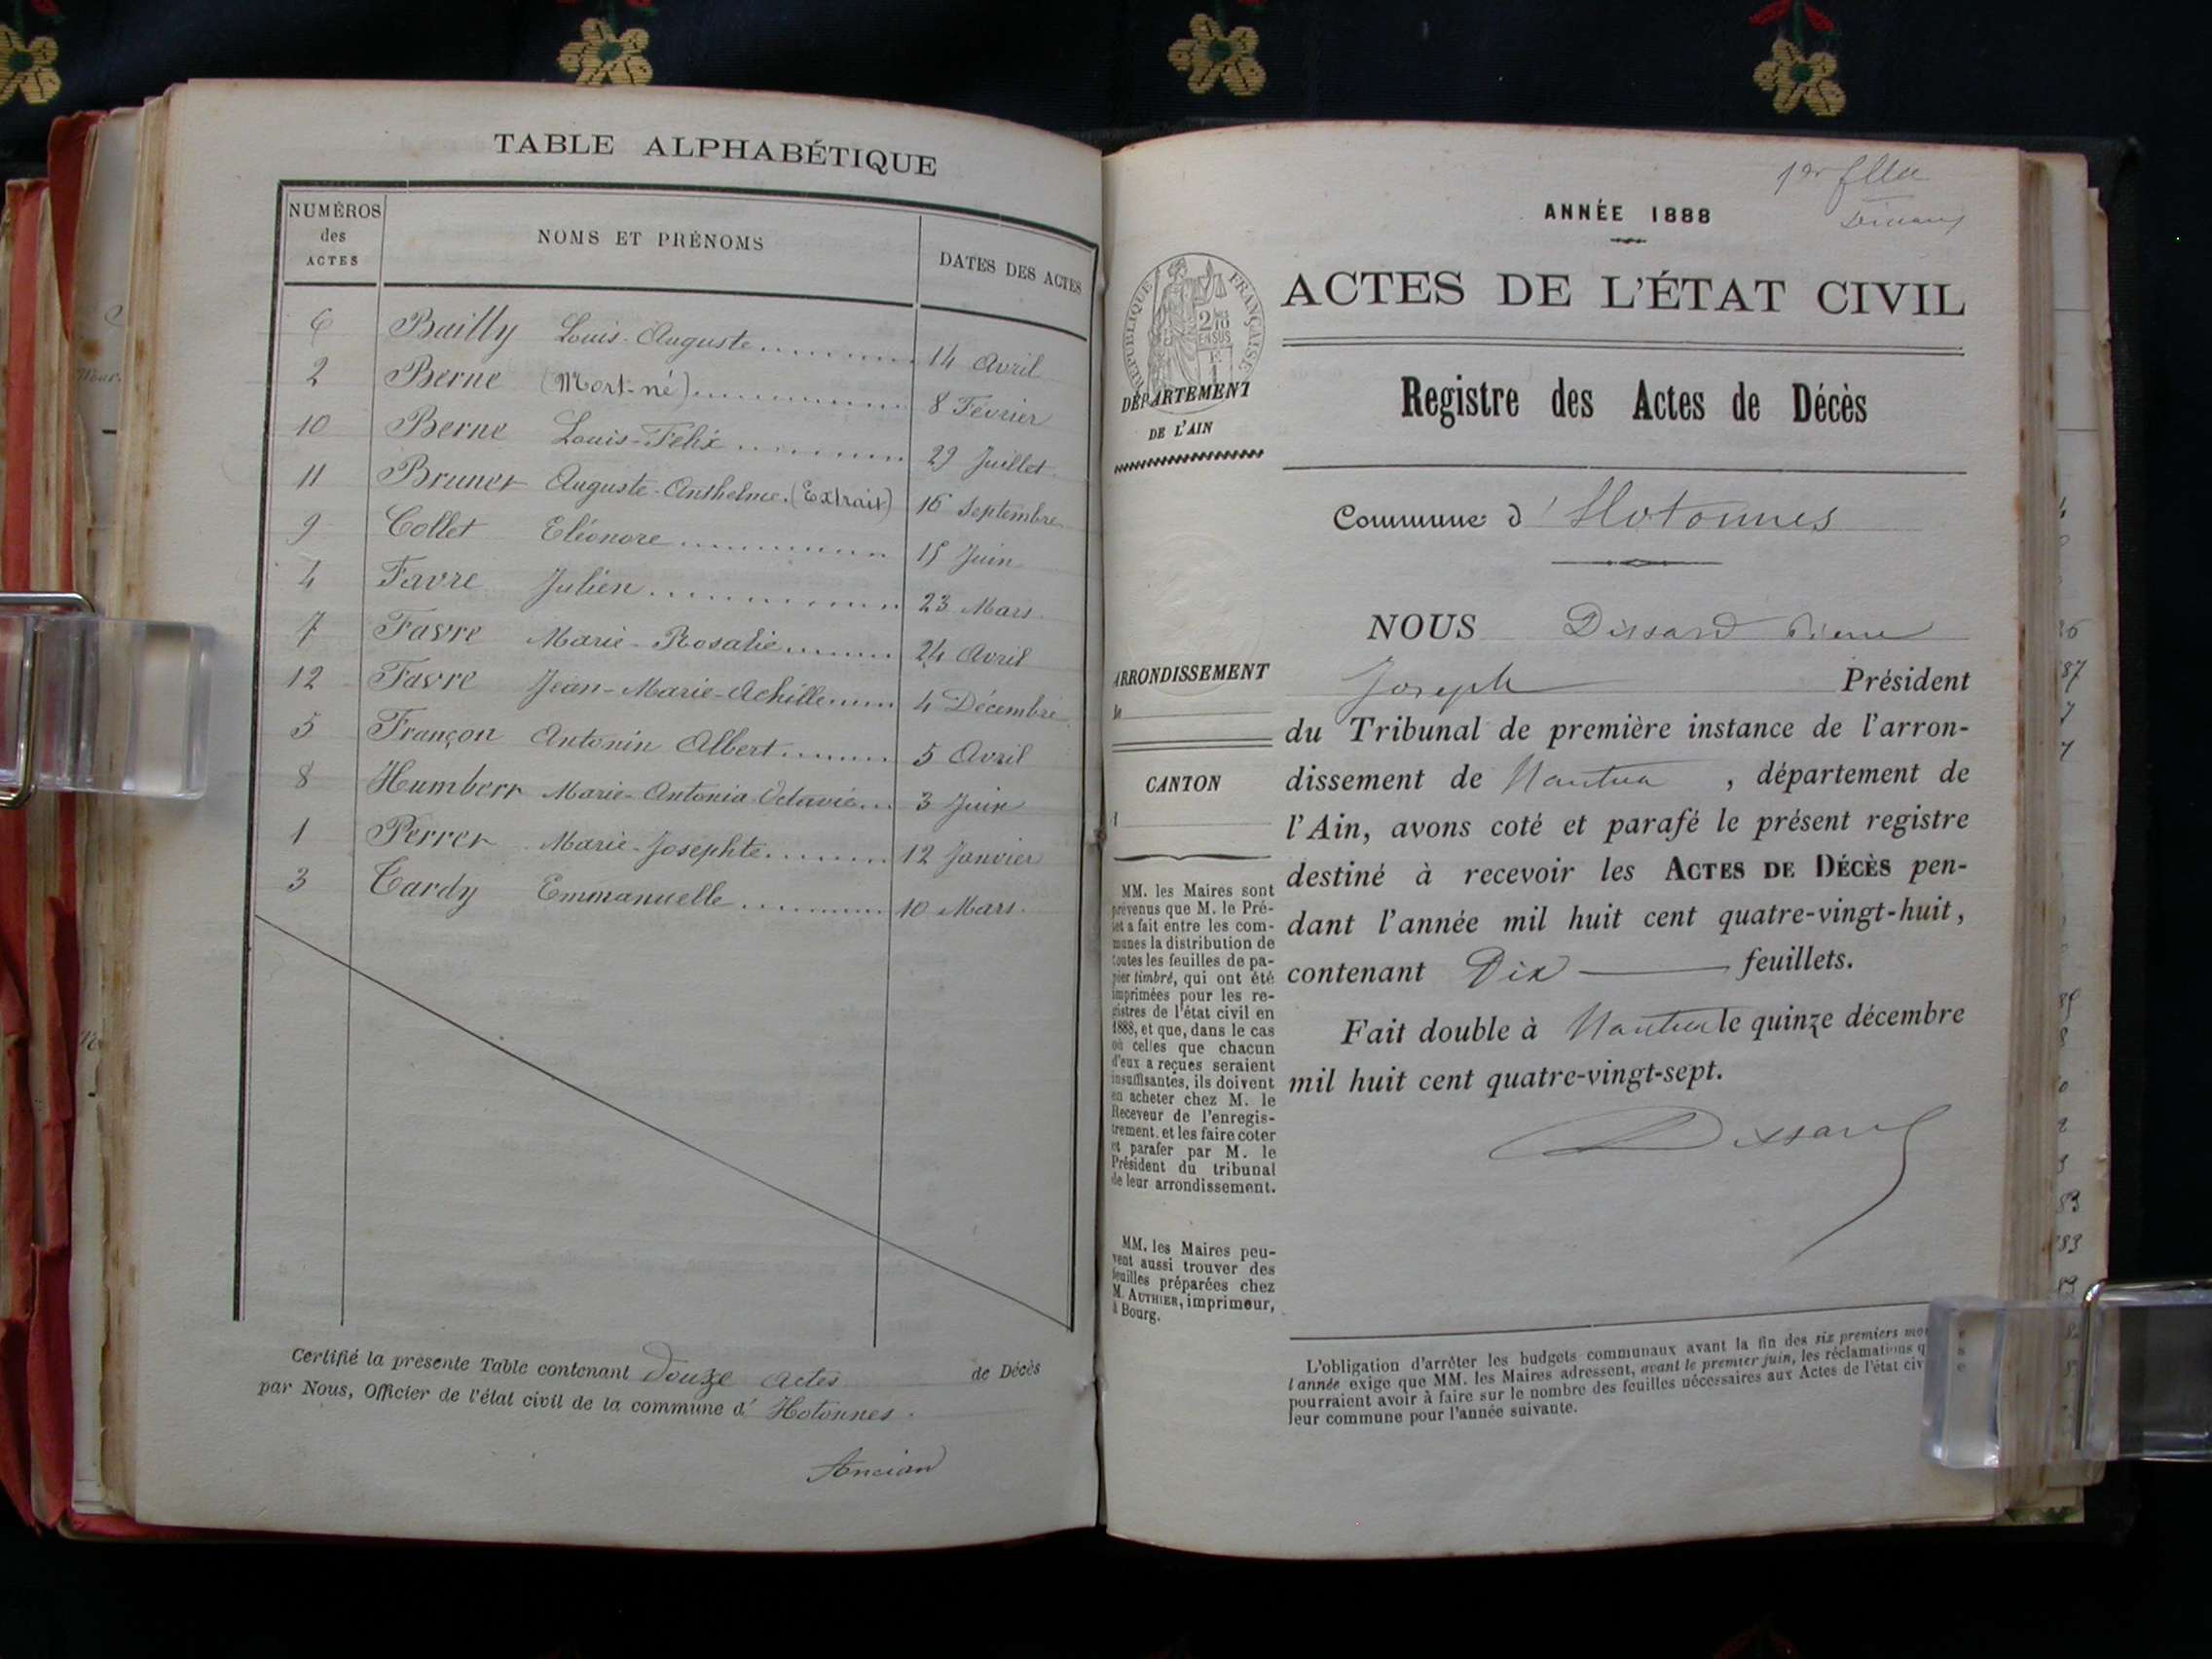 TABLE ALPHABÉTIQUE
NUMÉROS des ACTES
NOMS ET PRÉNOMS
DATES DES ACTES
6 Bailly Louis-Auguste 14 Avril
2 Berne (Mort-né) 8 Février
10 Berne Louis-Félix 29 Juillet
11 Brunet Auguste-Anthelme (Extrait) 16 Septembre
9 Collet Eléonore 15 Juin
4 Favre Julien 23 Mars
7 Favre Marie-Rosalie 24 Avril
12 Favre Jean-Marie-Achille 4 Décembre
5 Françon Antonin Albert 5 Avril
8 Humbert Marie-Antonia Octavie 3 Juin
1 Perret Marie-Josephte 12 Janvier
3 Tardy Emmanuelle 10 Mars
Certifié la présente Table contenant douze actes de Décès
par Nous, Officier de l'état civil de la commune d'Hotonnes.
Ancian
ANNÉE 1888
ACTES DE L'ÉTAT CIVIL
Registre des Actes de Décès
Commune d'Hotonnes
NOUS Dissard Pierre
Joseph Président
du Tribunal de première instance de l'arron-
dissement de Nantua, département de
l'Ain, avons coté et parafé le présent registre
destiné à recevoir les ACTES DE DÉCÈS pen-
dant l'année mil huit cent quatre-vingt-huit,
contenant Dix feuillets.
Fait double à Nantua le quinze décembre
mil huit cent quatre-vingt-sept.
Dissard
RÉPUBLIQUE FRANÇAISE
2/10 EN SUS
DÉPARTEMENT
DE L'AIN
ARRONDISSEMENT
CANTON
MM. les Maires sont
prévenus que M. le Pré-
fet a fait entre les com-
munes la distribution de
toutes les feuilles de pa-
pier timbré, qui ont été
imprimées pour les re-
gistres de l'état civil en
1888, et que, dans le cas
où celles que chacun
d'eux a reçues seraient
insuffisantes, ils doivent
en acheter chez M. le
Receveur de l'enregis-
trement, et les faire coter
et parafer par M. le
Président du tribunal
de leur arrondissement.
MM. les Maires peu-
vent aussi trouver des
feuilles préparées chez
M. AUTHIER, imprimeur,
à Bourg.
L'obligation d'arrêter les budgets communaux avant la fin des six premiers
l'année exige que MM. les Maires adressent, avant le premier juin, les réclamations
pourraient avoir à faire sur le nombre des feuilles nécessaires aux Actes de l'état
leur commune pour l'année suivante.